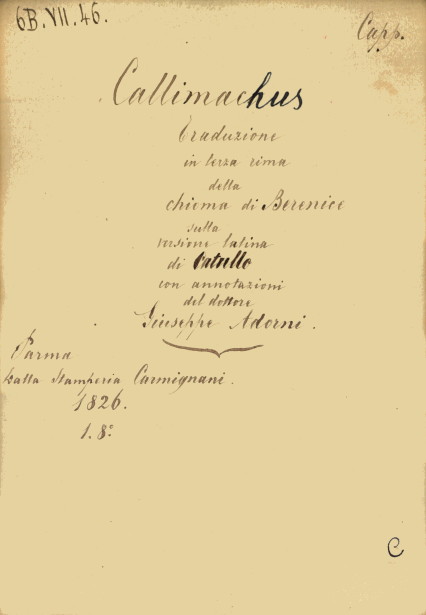 6B.VII.46.
Capp.
Callimachus
Traduzione
in terza rima
della
chioma di Berenice
sulla
versione latina
di Catullo
con annotazioni
del dottore
Giuseppe Adorni.
Parma
Dalla Stamperia Carmignani.
1826.
1.8°
C